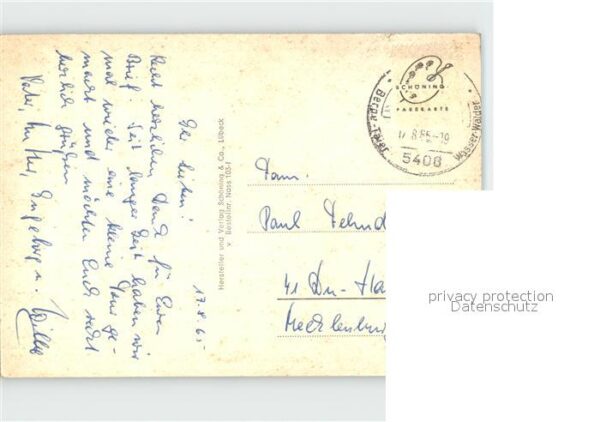 17.8.65
Ihr Lieben!
Recht herzlichen Dank für Euren
Brief. Seit langer Zeit haben wir
mal wieder eine kleine Tour ge-
macht und möchten Euch recht
herzlich grüßen
Ingeborg u.
Hersteller und Verlag Schöning & Co., Lübeck
× Bestellnr. Nass 105-f
SCHÖNING
FARBKARTE
Berge · Täler
Wasser · Wälder
17.8.65-19
5408
Fam.
Paul
41 Du-Ha
Mecklenburg
privacy protection
Datenschutz